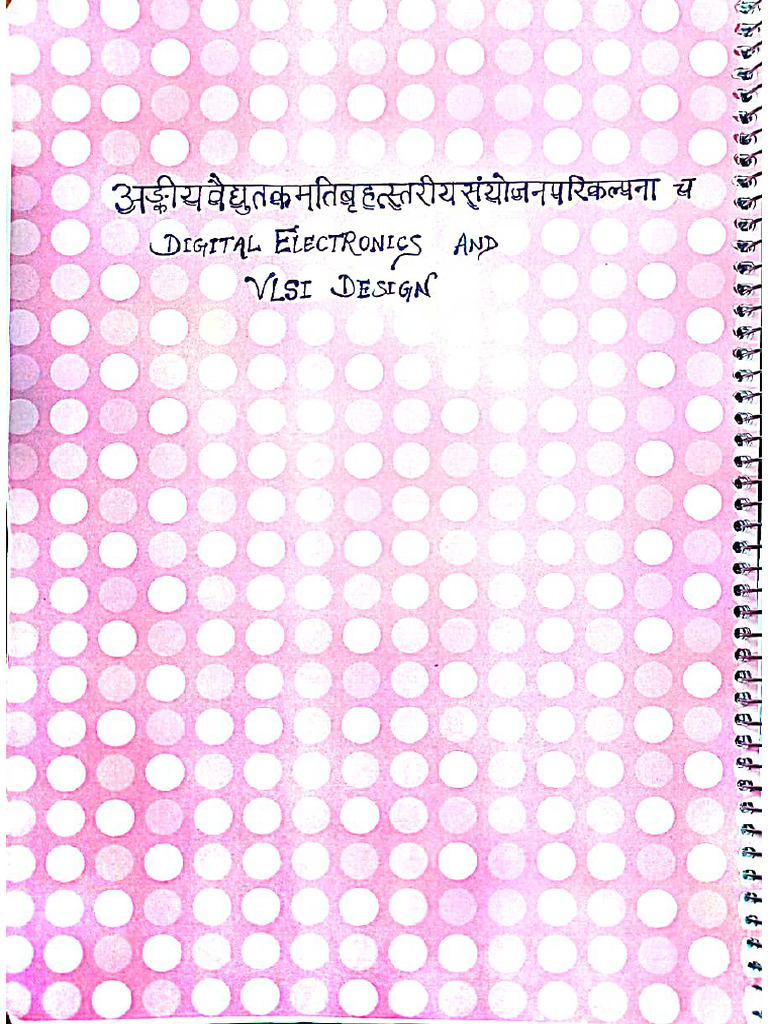 अङ्कीयवैद्युतकमतिबृहत्स्तरीयसंयोजनपरिकल्पना च
DIGITAL ELECTRONICS AND
VLSI DESIGN